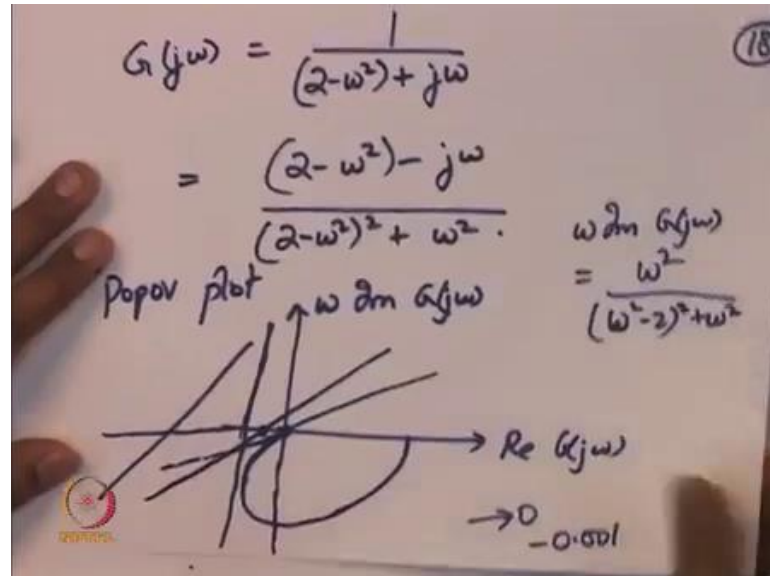 18
G(jω) = 1 / ((2-ω²)+jω)
= ((2-ω²)-jω) / ((2-ω²)²+ω²).
ω Im G(jω)
= ω² / ((ω²-2)²+ω²)
Popov plot
ω Im G(jω)
Re G(jω)
→0
-0.001